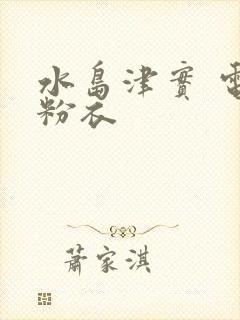 水島津實 電
粉衣
蕭家淇